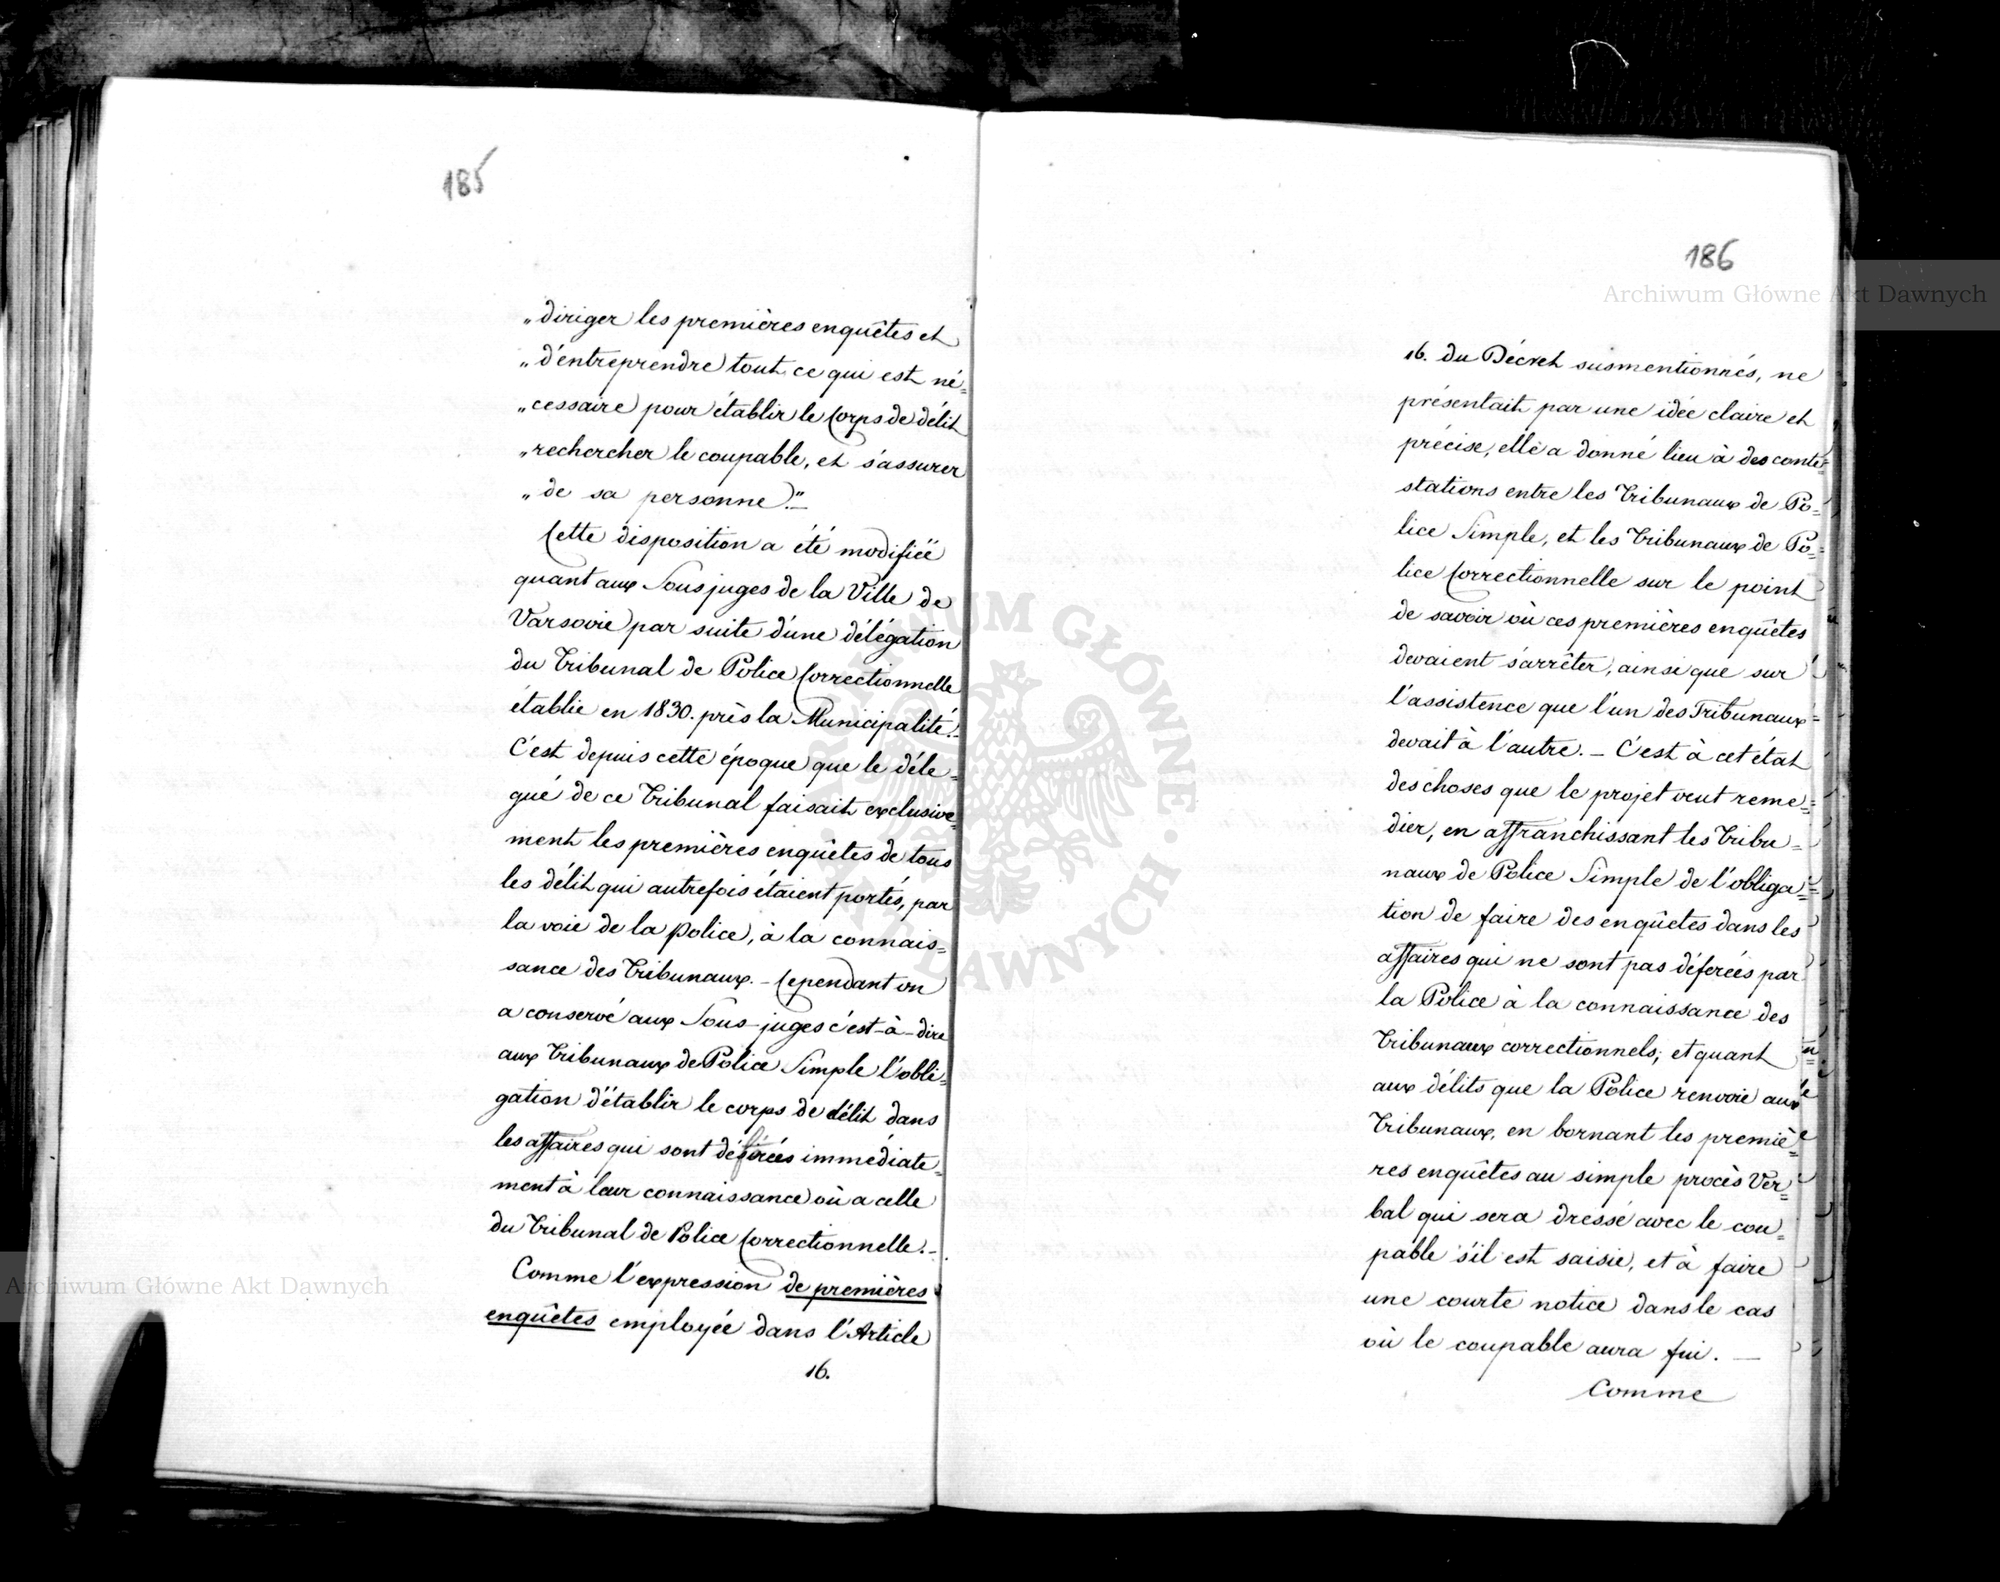 185
„diriger les premières enquêtes et
„d'entreprendre tout ce qui est né=
„cessaire pour établir le Corps de délit
„rechercher le coupable, et s'assurer
„de sa personne."—
Cette disposition a été modifiée
quant aux Sousjuges de la Ville de
Varsovie par suite d'une délégation
du Tribunal de Police Correctionnelle
établie en 1830. près la Municipalité.—
C'est depuis cette époque que le déle=
gué de ce Tribunal faisait exclusive=
ment les premières enquêtes de tous
les délit qui autrefois étaient portés, par
la voie de la police, à la connais=
sance des Tribunaux. — Cependant on
a conservé aux Sous-juges c'est-à-dire
aux Tribunaux de Police Simple l'obli=
gation d'établir le corps de délit dans
les affaires qui sont déférées immédiate=
ment à leur connaissance où a celle
du Tribunal de Police Correctionnelle.—
Comme l'expression de premières
enquêtes employée dans l'Article
16.
186
16. du Décret susmentionnés, ne
présentait par une idée claire et
précise, elle a donné lieu à des conte=
stations entre les Tribunaux de Po=
lice Simple, et les Tribunaux de Po=
lice Correctionnelle sur le point
de savoir où ces premières enquêtes
devaient s'arrêter, ainsi que sur
l'assistence que l'un des Tribunaux
devait à l'autre. — C'est à cet état
des choses que le projet veut reme=
dier, en affranchissant les Tribu=
naux de Police Simple de l'obliga=
tion de faire des enquêtes dans les
affaires qui ne sont pas déferées par
la Police à la connaissance des
Tribunaux correctionnels; et quant
aux délits que la Police renvoie aux
Tribunaux, en bornant les premiè=
res enquêtes au simple procès Ver=
bal qui sera dressé avec le cou=
pable s'il est saisie, et à faire
une courte notice dans le cas
où le coupable aura fui. —
Comme
Archiwum Główne Akt Dawnych
Archiwum Główne Akt Dawnych
ARCHIWUM GŁÓWNE AKT DAWNYCH